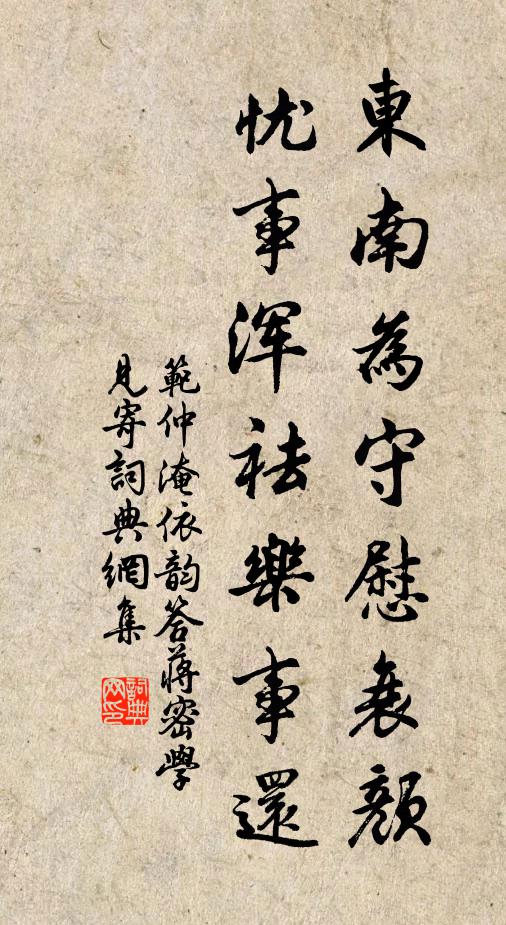 東南為守慰衰顏
忧事浑祛樂事還
範仲淹依韵答蔣密學
見寄詞典網集
詞典
网印